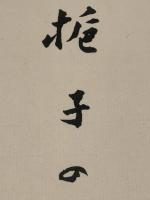 梔子の